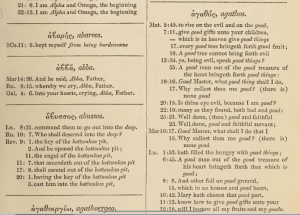 21: 6. I am Alpha and Omega, the beginning
22:13. I am Alpha and Omega, the beginning
ἀβαρής, abarees.
2Co.11: 9. kept myself from being burdensome
ἀββᾶ, abba.
Mar14:36. And he said, Abba, Father,
Ro. 8:15. whereby we cry, Abba, Father.
Gal. 4: 6. into your hearts, crying, Abba, Father.
ἄβυσσος, abussos.
Lu. 8:31. command them to go out into the deep.
Ro. 10: 7. Who shall descend into the deep?
Rev. 9: 1. the key of the bottomless pit.
2. And he opened the bottomless pit;
11. the angel of the bottomless pit,
11: 7. that ascendeth out of the bottomless pit
17: 8. shall ascend out of the bottomless pit,
20: 1. having the key of the bottomless pit
3. cast him into the bottomless pit,
ἀγαθοεργέω, agathoergeo.
ἀγαθός, agathos.
Mat. 5:45. to rise on the evil and on the good,
7:11. give good gifts unto your children,
— which is in heaven give good things
17. every good tree bringeth forth good fruit;
18. A good tree cannot bring forth evil
12:34. ye, being evil, speak good things?
35. A good man out of the good treasure of
the heart bringeth forth good things:
19:16. Good Master, what good thing shall I do,
17. Why callest thou me good? (there is)
none good
20:15. Is thine eye evil, because I am good?
22:10. many as they found, both bad and good:
25:21. Well done, (thou) good and faithful
23. Well done, good and faithful servant;
Mar10:17. Good Master, what shall I do that I
18. Why callest thou me good? (there is)
none good
Lu. 1:53. hath filled the hungry with good things;
6:45. A good man out of the good treasure of
his heart bringeth forth that which is
good;
8: 8. And other fell on good ground,
15. which in an honest and good heart,
10:42. Mary hath chosen that good part,
11:13. know how to give good gifts unto your
12:18. will I bestow all my fruits and my goods.